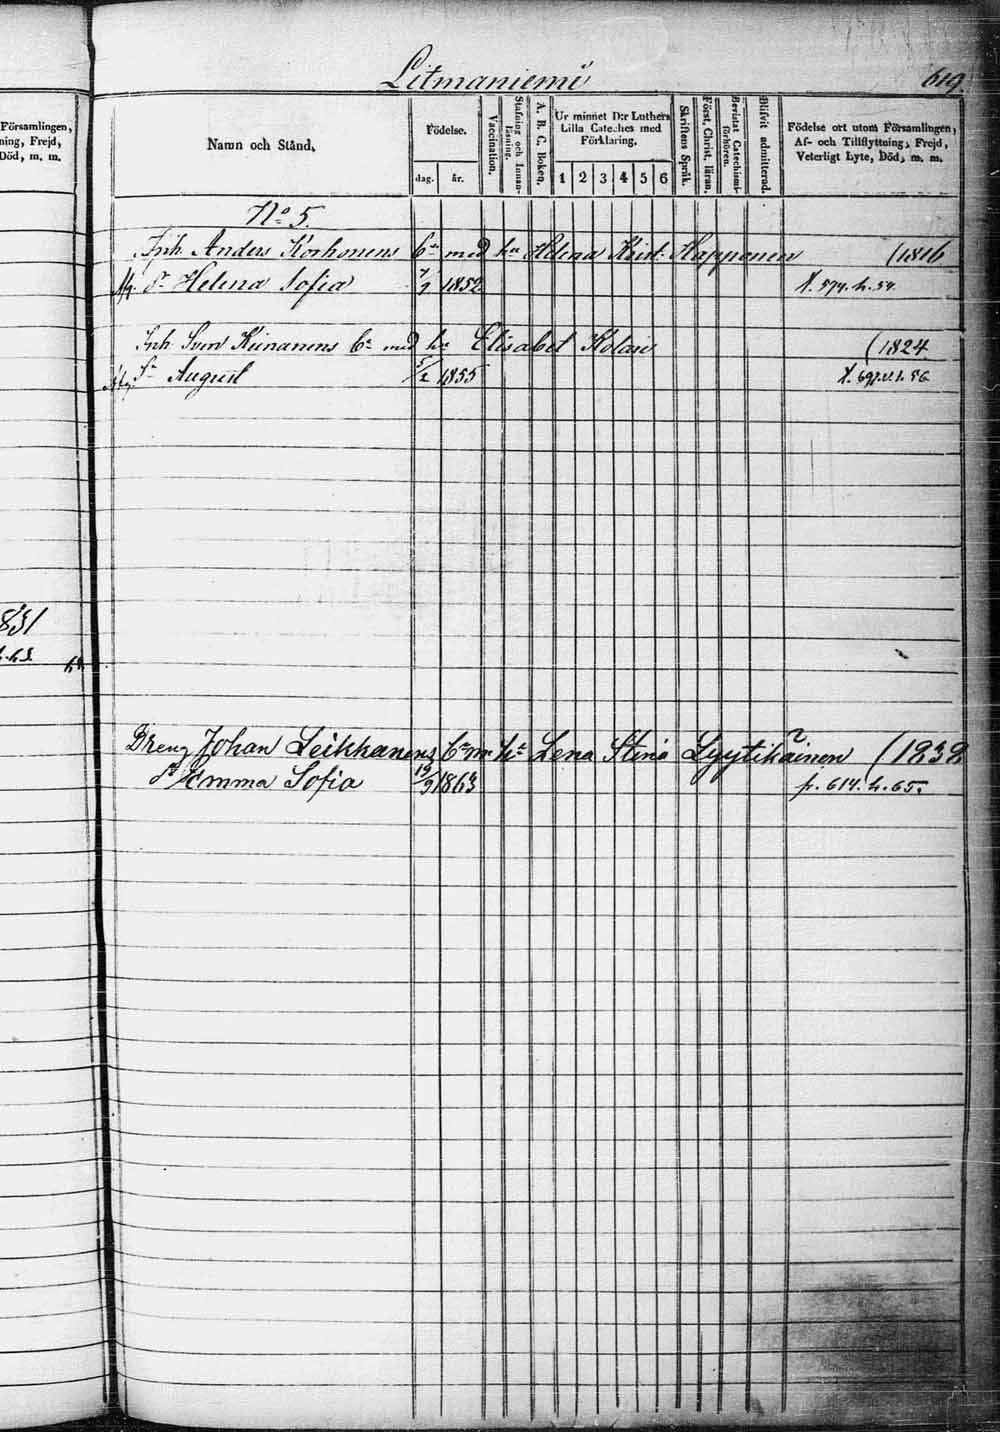 Litmaniemi
619
Församlingen,
ning, Frejd,
Död, m. m.
Namn och Stånd,
Födelse.
dag. år.
Vaccination.
Stafning och Innan-
läsning.
A. B. C. Boken.
Ur minnet D:r Luthers
Lilla Cateches med
Förklaring.
1 2 3 4 5 6
Skriftens Språk.
Först. Christ. läran.
Bevistat Catechismi-
förhören.
Blifvit admitterad.
Födelse ort utom Församlingen,
Af- och Tillflyttning, Frejd,
Veterligt Lyte, Död, m. m.
No 5.
Inh. Anders Korhonens med hu Helena Krist: Happonen (1816
Dr Helena Sofia 7/9 1852 574. h. 54.
Inh Sven Kiinanens med hu Elisabet Kolari (1824
Sn August 5/2 1855 56
831
Dreng Johan Leikkanens Lena Stina Lyytikäinen (1838
Dr Emma Sofia 19/9 1863 p. 614. h. 65.